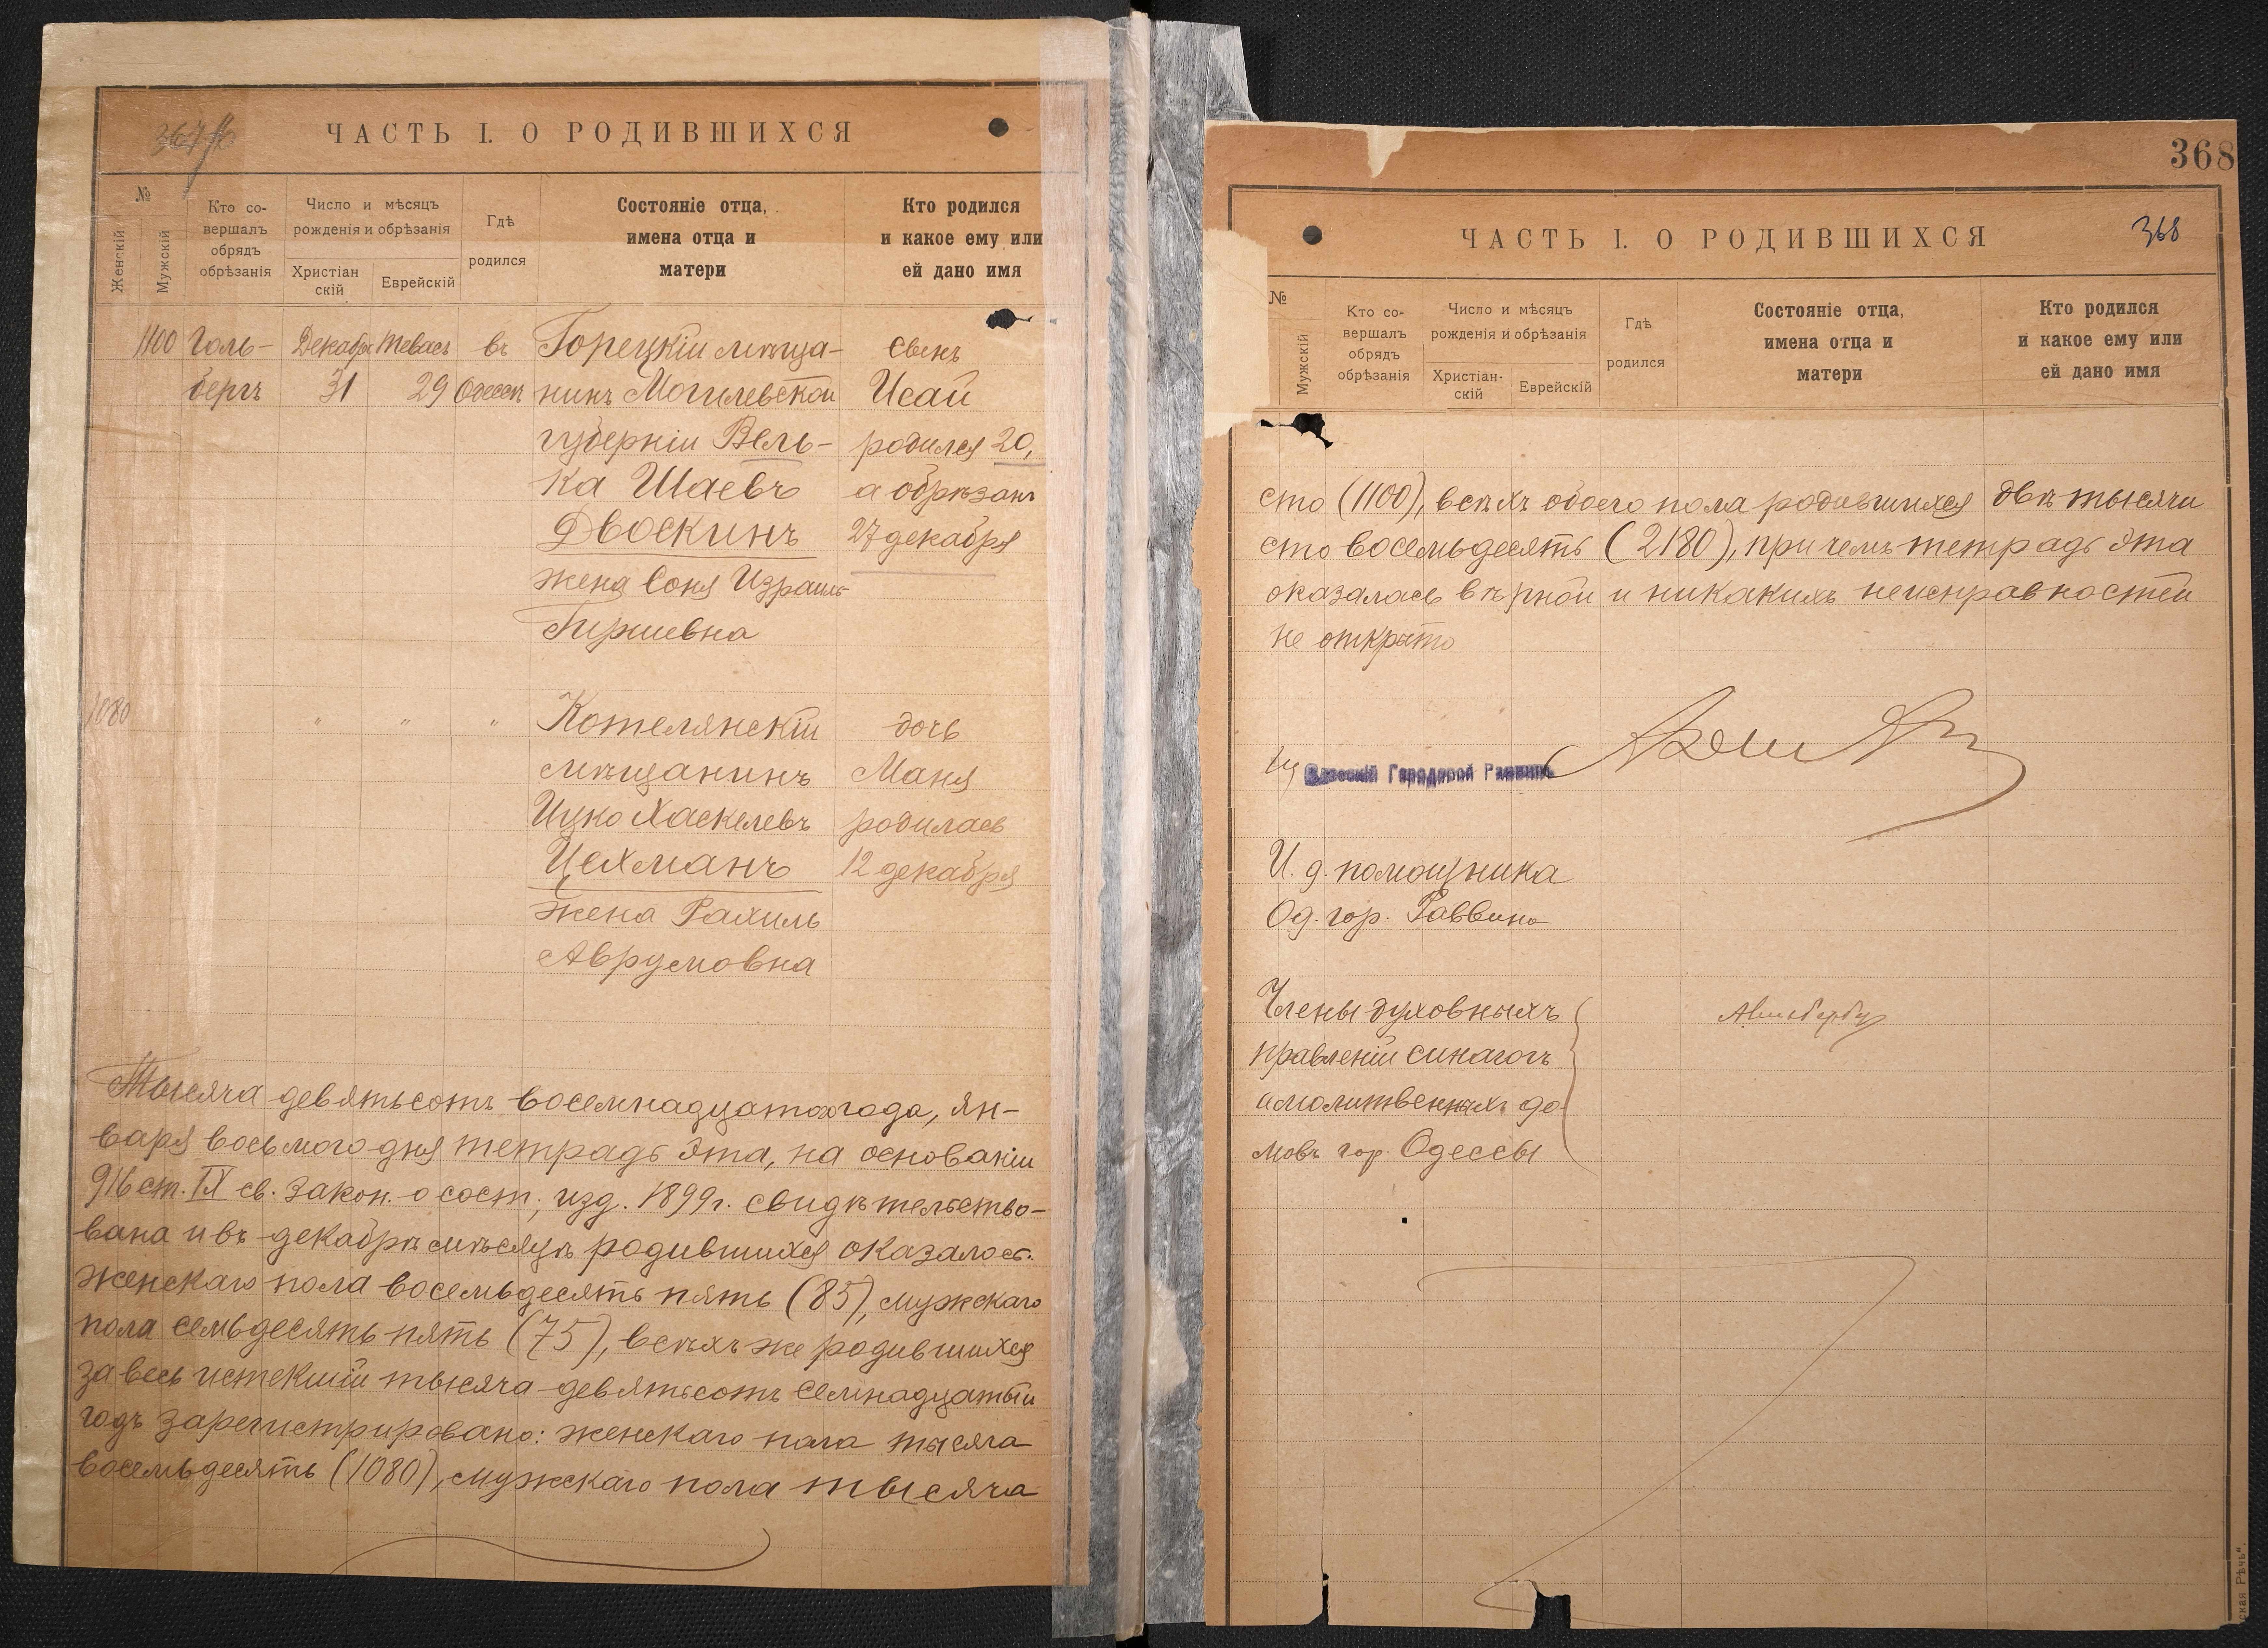 367
ЧАСТЬ I. О РОДИВШИХСЯ
№
Женскій
Мужскій
Кто со-
вершалъ
обрядъ
обрѣзанія
Число и мѣсяцъ
рожденія и обрѣзанія
Христіан
скій
Еврейскій
Гдѣ
родился
Состояніе отца,
имена отца и
матери
Кто родился
и какое ему или
ей дано имя
1100 Голь- Декабрь Тевасъ въ Горецкій мѣща- сынъ
бергъ 31 29 Одессѣ нинъ Могилевской Исай
губерніи Вель- родился 20,
ка Шаевъ а обрѣзанъ
Двоскинъ 27 декабря
жена Соня Израиль-
Гиршевна
1080 " " " Котелянскій дочь
мѣщанинъ Маня
Ицко Хаскелевъ родилась
Цехманъ 12 декабря
жена Рахиль
Аврумовна
Тысяча девятьсотъ восемнадцатого года, ян-
варя восьмого дня тетрадь эта, на основаніи
916 ст. IX св. закон. о сост., изд. 1899 г. свидѣтельство-
вана и въ декабрѣ мѣсяцѣ родившихся оказалось:
женскаго пола восемьдесятъ пять (85), мужскаго
пола семьдесятъ пять (75), всѣхъ же родившихся
за весь истекшій тысяча девятьсотъ семнадцатый
годъ зарегистрировано: женскаго пола тысяча
восемьдесятъ (1080), мужскаго пола тысяча
368
ЧАСТЬ I. О РОДИВШИХСЯ
368
№
Мужскій
Кто со-
вершалъ
обрядъ
обрѣзанія
Число и мѣсяцъ
рожденія и обрѣзанія
Христіан-
скій
Еврейскій
Гдѣ
родился
Состояніе отца,
имена отца и
матери
Кто родился
и какое ему или
ей дано имя
сто (1100), всѣхъ обоего пола родившихся двѣ тысячи
сто восемьдесятъ (2180), при чемъ тетрадь эта
оказалась вѣрной и никакихъ неисправностей
не открыто
Одесскій Городовой Раввинъ
И. д. помощника
Од. гор. Раввина
Члены духовныхъ
правленій синагогъ
и молитвенныхъ до-
мовъ гор. Одессы
ская Рѣчь".